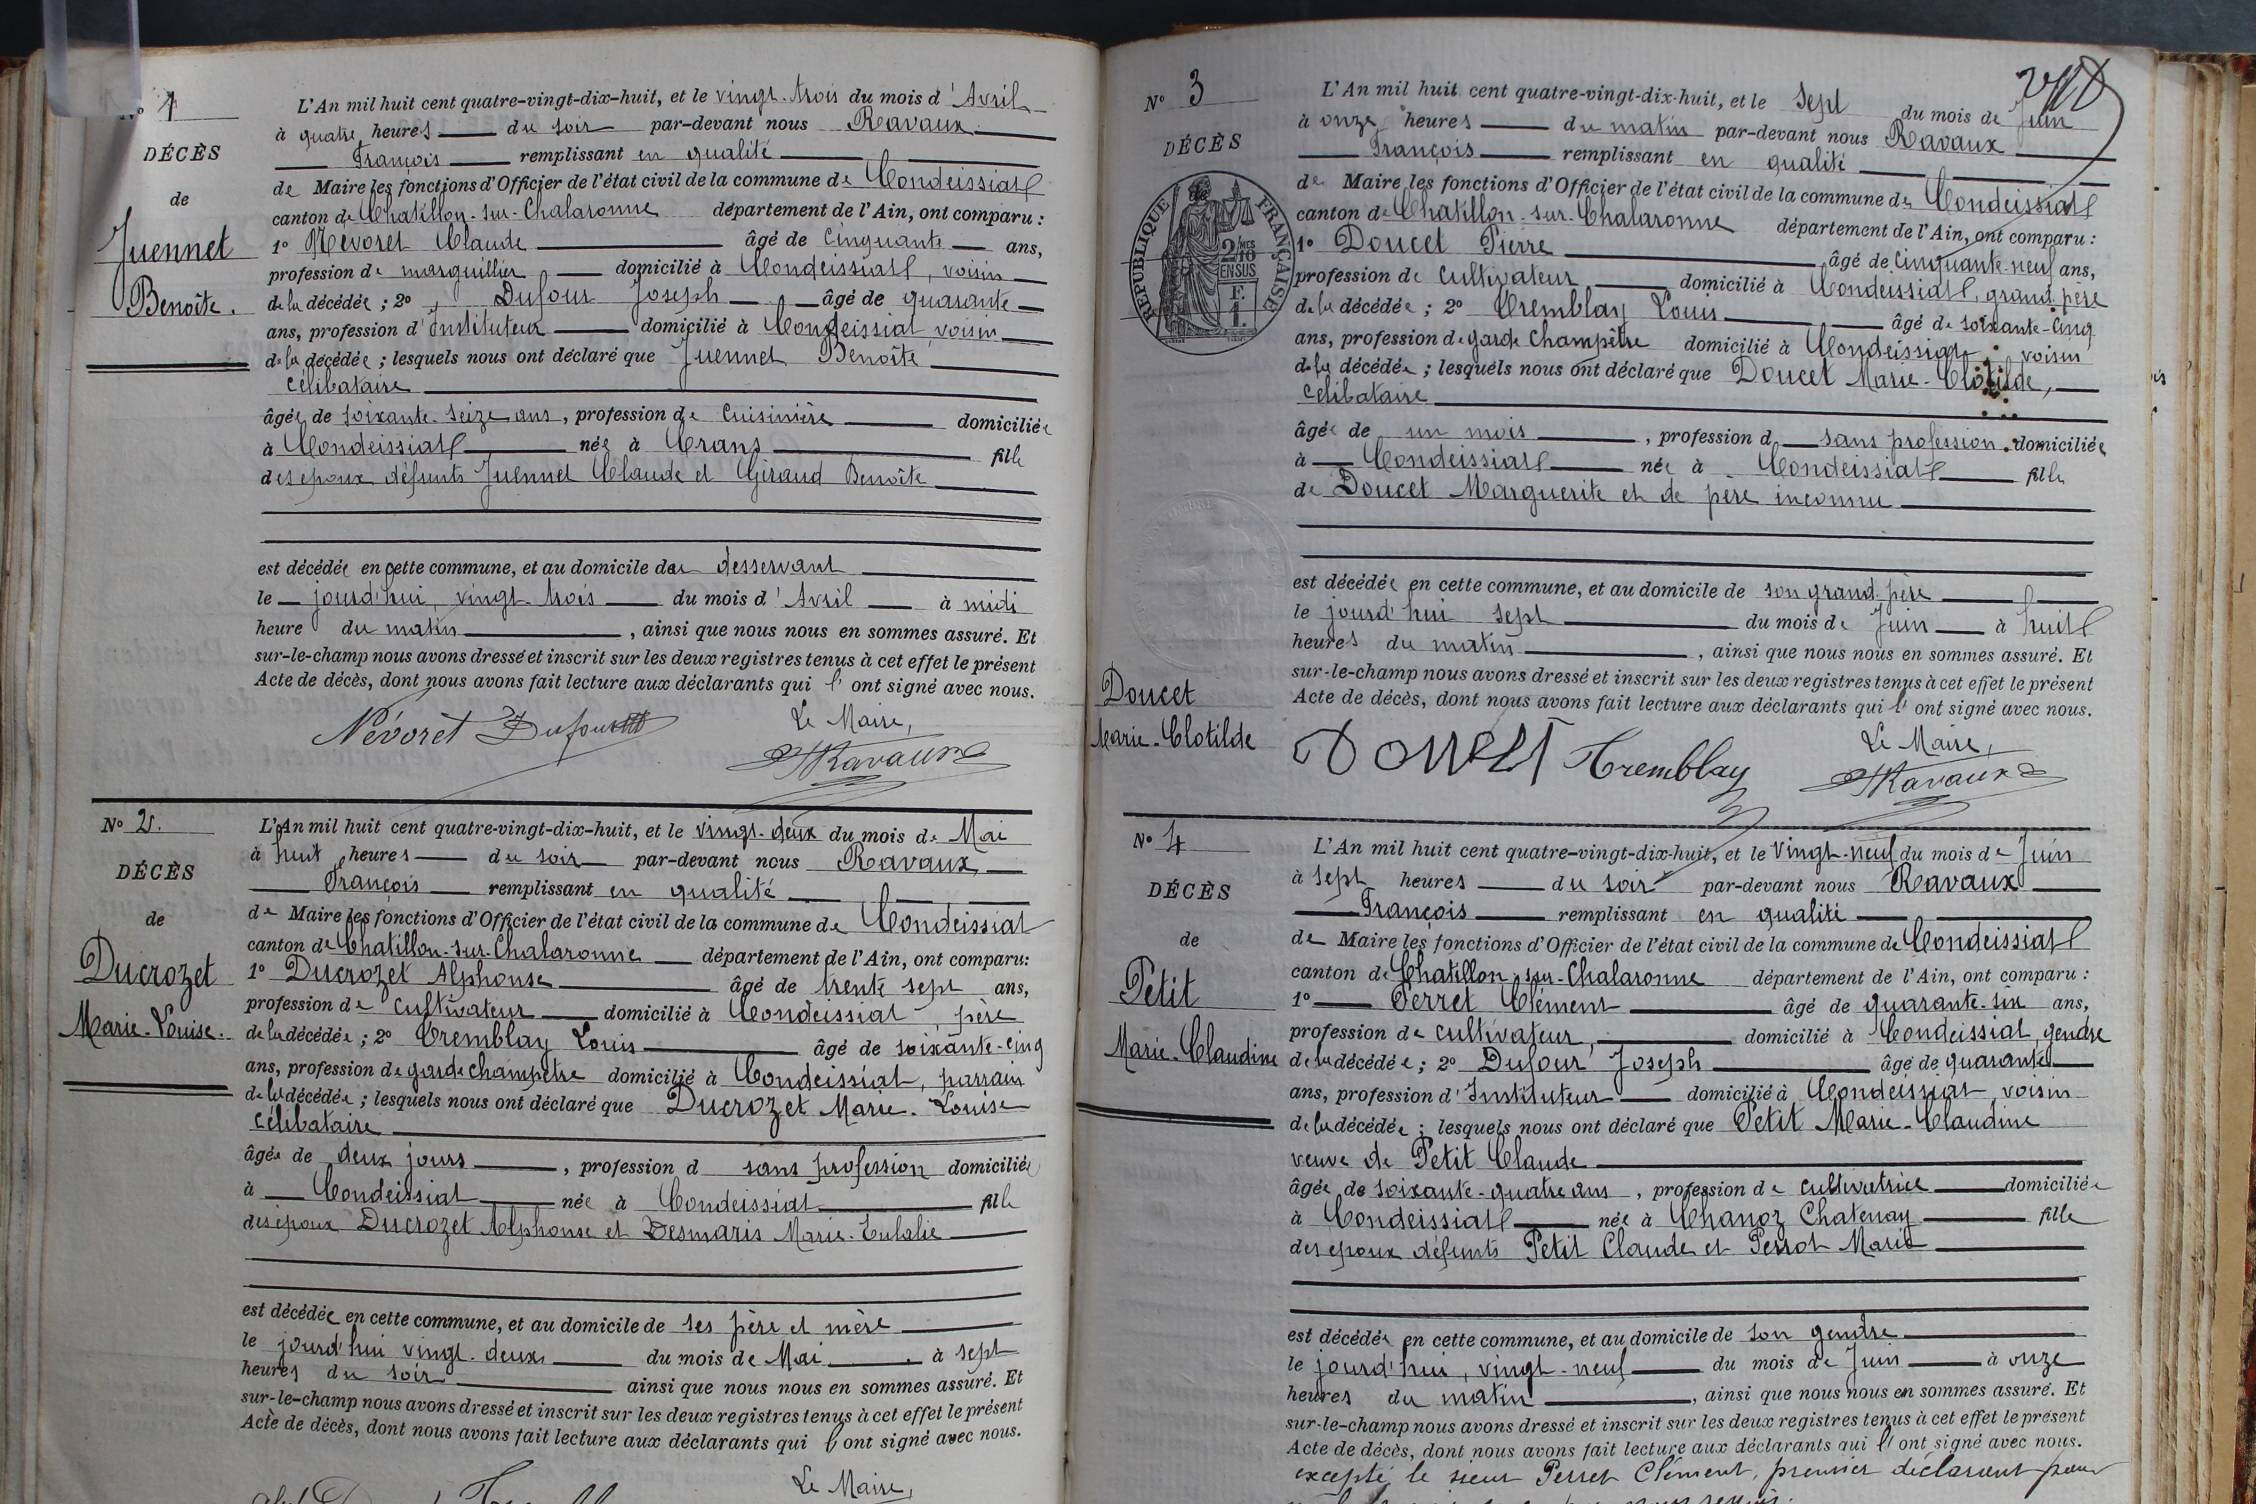 N° 1
DÉCÈS
de
Juennet
Benoîte.
L'An mil huit cent quatre-vingt-dix-huit, et le vingt-trois du mois d'Avril
à quatre heures du soir par-devant nous Ravaux
François remplissant en qualité
de Maire les fonctions d'Officier de l'état civil de la commune de Condeissiat
canton de Chatillon-sur-Chalaronne département de l'Ain, ont comparu :
1° Névoret Claude âgé de cinquante ans,
profession de marguillier domicilié à Condeissiat, voisin
de la décédée ; 2° Dufour Joseph âgé de quarante
ans, profession d'Instituteur domicilié à Condeissiat, voisin
de la décédée ; lesquels nous ont déclaré que Juennet Benoîte
célibataire
âgée de soixante-seize ans, profession de cuisinière domiciliée
à Condeissiat née à Crans fille
des époux défunts Juennet Claude et Giraud Benoîte
est décédée en cette commune, et au domicile du desservant
le jourd'hui, vingt-trois du mois d'Avril à midi
heure du matin, ainsi que nous nous en sommes assuré. Et
sur-le-champ nous avons dressé et inscrit sur les deux registres tenus à cet effet le présent
Acte de décès, dont nous avons fait lecture aux déclarants qui l'ont signé avec nous.
Le Maire,
Névoret Dufour
Ravaux
N° 2.
DÉCÈS
de
Ducrozet
Marie-Louise.
L'An mil huit cent quatre-vingt-dix-huit, et le vingt-deux du mois de Mai
à huit heures du soir par-devant nous Ravaux
François remplissant en qualité
de Maire les fonctions d'Officier de l'état civil de la commune de Condeissiat
canton de Chatillon-sur-Chalaronne département de l'Ain, ont comparu:
1° Ducrozet Alphonse âgé de trente sept ans,
profession de cultivateur domicilié à Condeissiat, père
de la décédée ; 2° Tremblay Louis âgé de soixante-cinq
ans, profession de garde champêtre domicilié à Condeissiat, parrain
de la décédée ; lesquels nous ont déclaré que Ducrozet Marie-Louise
célibataire
âgée de deux jours, profession d sans profession domiciliée
à Condeissiat née à Condeissiat fille
des époux Ducrozet Alphonse et Desmaris Marie-Eulalie
est décédée en cette commune, et au domicile de ses père et mère
le jourd'hui vingt-deux du mois de Mai à sept
heures du soir ainsi que nous nous en sommes assuré. Et
sur-le-champ nous avons dressé et inscrit sur les deux registres tenus à cet effet le présent
Acte de décès, dont nous avons fait lecture aux déclarants qui l'ont signé avec nous.
Le Maire,
N° 3
DÉCÈS
de
RÉPUBLIQUE FRANÇAISE
2/10MES
EN SUS
F.
1.
Doucet
Marie-Clotilde
L'An mil huit cent quatre-vingt-dix-huit, et le sept du mois de Juin
à onze heures du matin par-devant nous Ravaux
François remplissant en qualité
de Maire les fonctions d'Officier de l'état civil de la commune de Condeissiat
canton de Chatillon-sur-Chalaronne département de l'Ain, ont comparu :
1° Doucet Pierre âgé de cinquante-neuf ans,
profession de cultivateur domicilié à Condeissiat, grand-père
de la décédée ; 2° Tremblay Louis âgé de soixante-cinq
ans, profession de garde champêtre domicilié à Condeissiat voisin
de la décédée ; lesquels nous ont déclaré que Doucet Marie-Clotilde,
célibataire
âgée de un mois, profession d sans profession domiciliée
à Condeissiat née à Condeissiat fille
de Doucet Marguerite et de père inconnu
est décédée en cette commune, et au domicile de son grand-père
le jourd'hui sept du mois de Juin à huit
heures du matin, ainsi que nous nous en sommes assuré. Et
sur-le-champ nous avons dressé et inscrit sur les deux registres tenus à cet effet le présent
Acte de décès, dont nous avons fait lecture aux déclarants qui l'ont signé avec nous.
Le Maire,
Doucet Tremblay
Ravaux
N° 4
DÉCÈS
de
Petit
Marie-Claudine
L'An mil huit cent quatre-vingt-dix-huit, et le vingt-neuf du mois de Juin
à sept heures du soir par-devant nous Ravaux
François remplissant en qualité
de Maire les fonctions d'Officier de l'état civil de la commune de Condeissiat
canton de Chatillon-sur-Chalaronne département de l'Ain, ont comparu :
1° Perret Clément âgé de quarante-six ans,
profession de cultivateur, domicilié à Condeissiat, gendre
de la décédée ; 2° Dufour Joseph âgé de quarante
ans, profession d'Instituteur domicilié à Condeissiat, voisin
de la décédée ; lesquels nous ont déclaré que Petit Marie-Claudine
veuve de Petit Claude
âgée de soixante-quatre ans, profession de cultivatrice domiciliée
à Condeissiat née à Chanoz Chatenay fille
des époux défunts Petit Claude et Perrot Marie
est décédée en cette commune, et au domicile de son gendre
le jourd'hui, vingt-neuf du mois de Juin à onze
heures du matin, ainsi que nous nous en sommes assuré. Et
sur-le-champ nous avons dressé et inscrit sur les deux registres tenus à cet effet le présent
Acte de décès, dont nous avons fait lecture aux déclarants qui l'ont signé avec nous.
excepté le sieur Perret Clément, premier déclarant pour